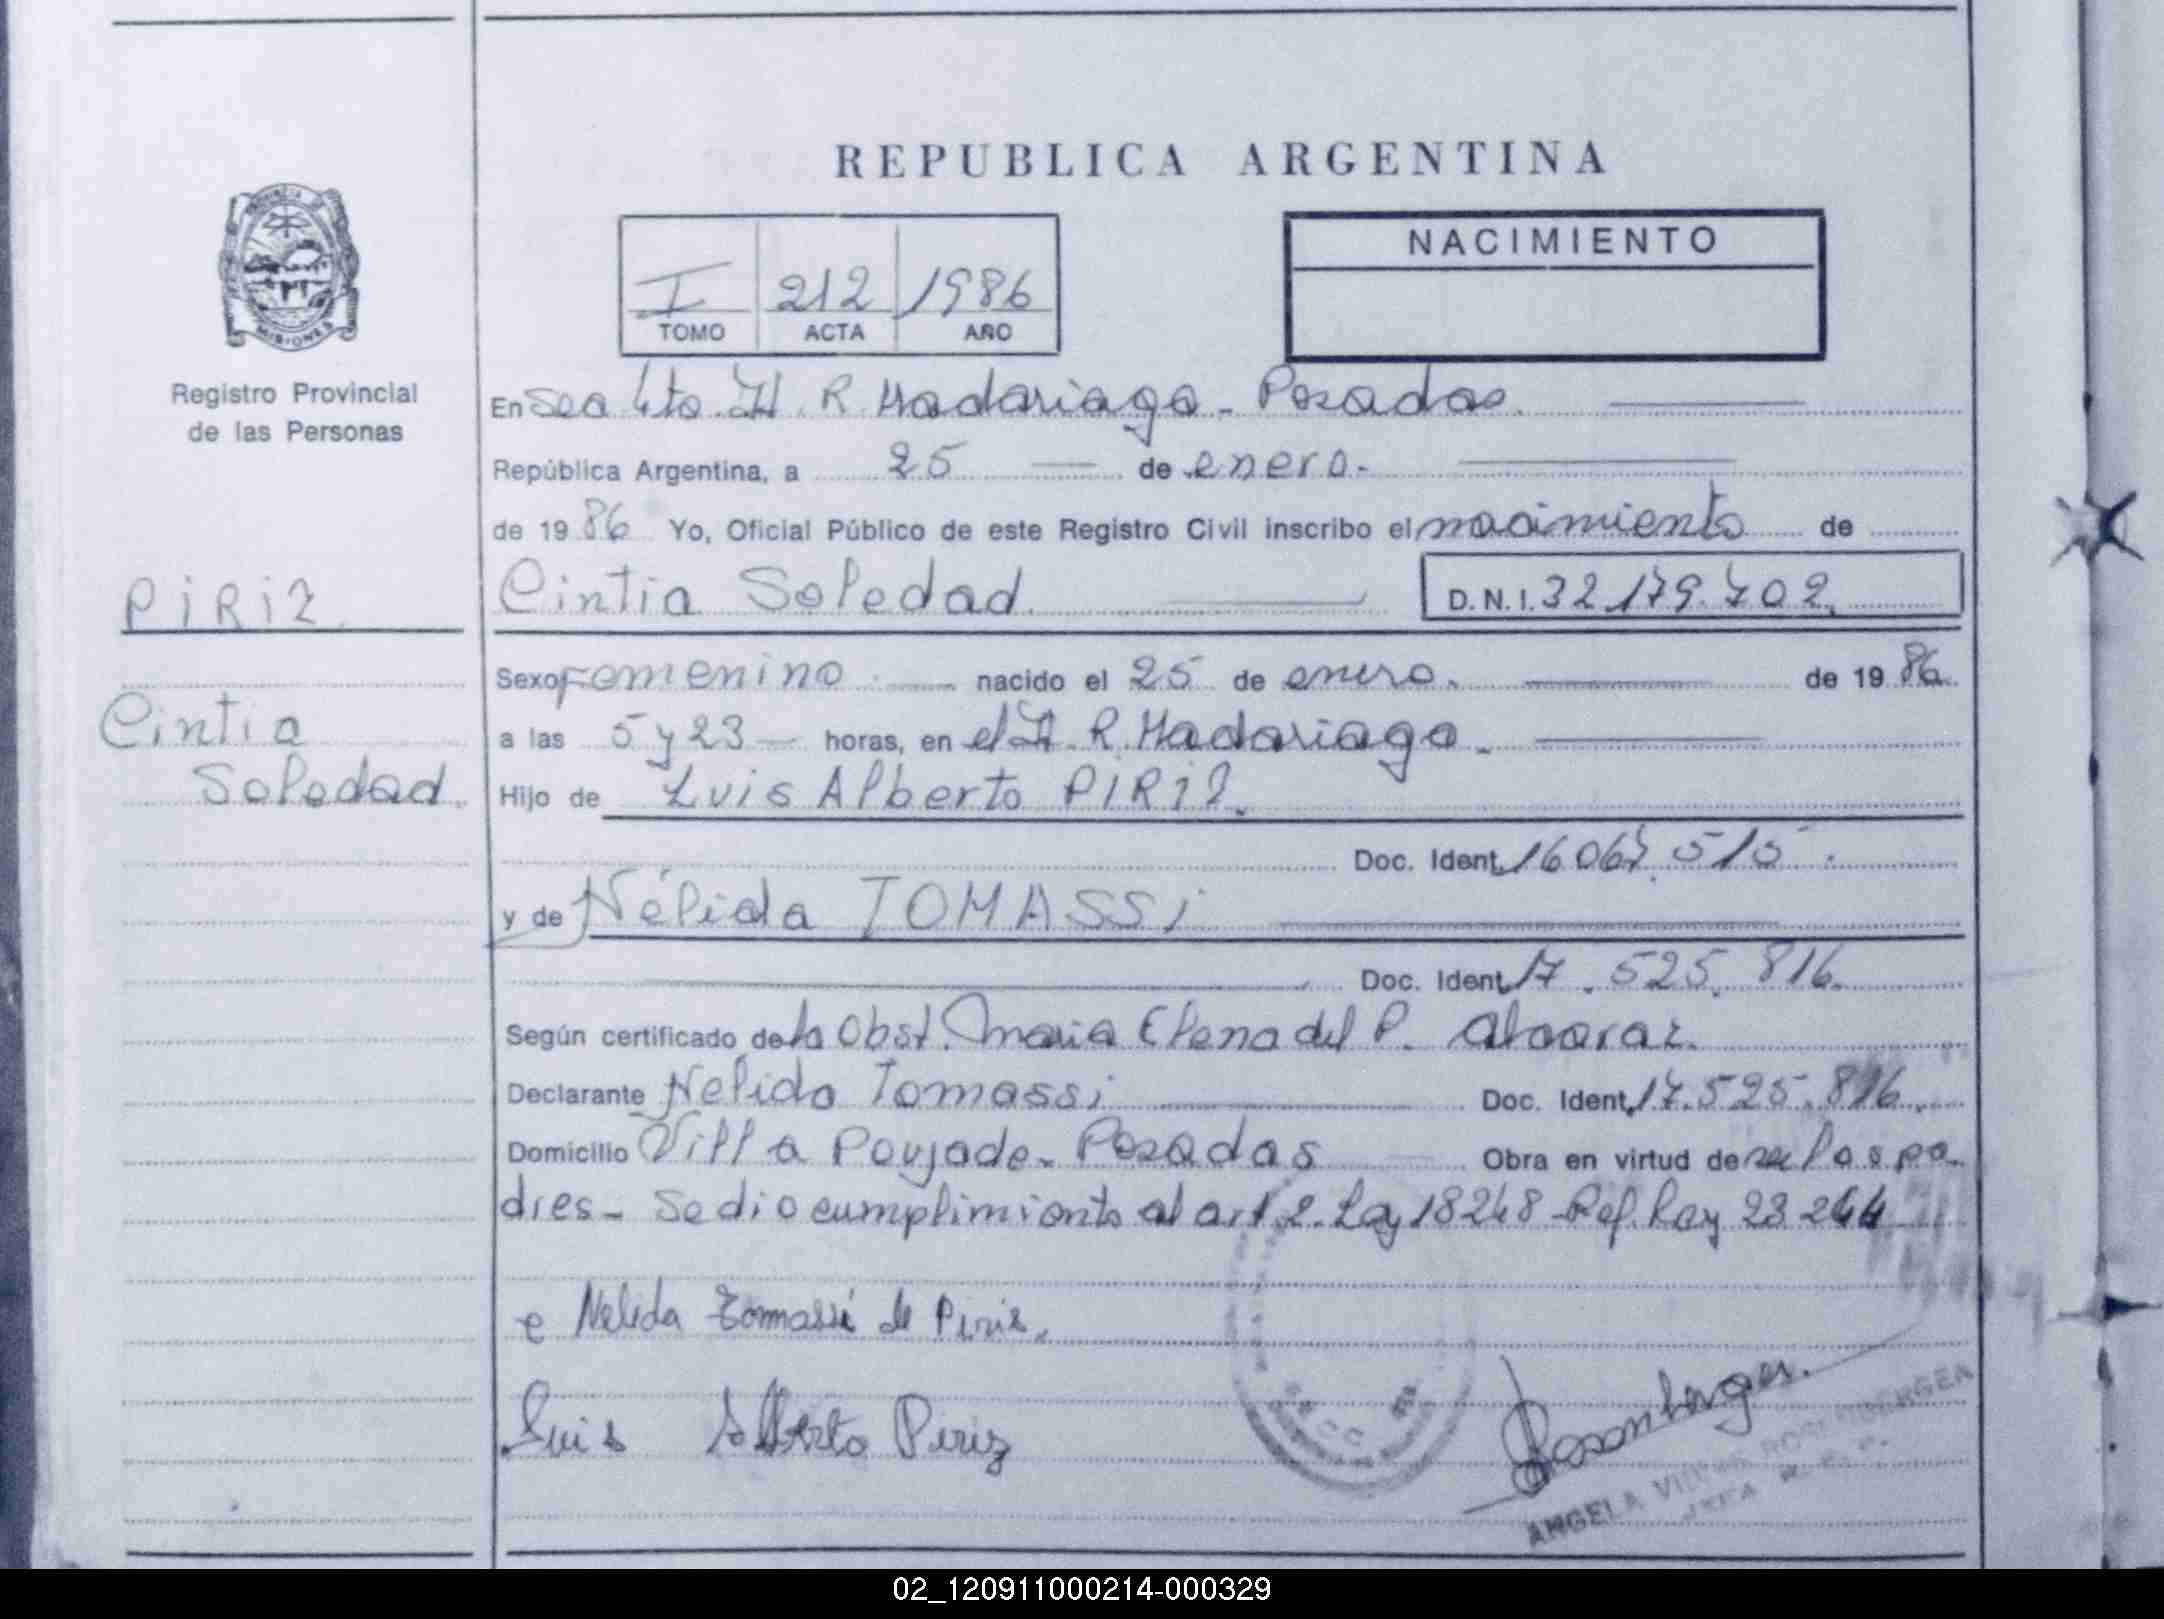 REPUBLICA ARGENTINA
PROVINCIA DE
MISIONES
Registro Provincial
de las Personas
I 212 1986
TOMO ACTA AÑO
NACIMIENTO
En Sec 4to. H. R. Madariaga - Posadas.
República Argentina, a 25 de enero.
de 1986 Yo, Oficial Público de este Registro Civil inscribo el nacimiento de
PiRiZ
Cintia Soledad D. N. I. 32.179.702.
Sexo Femenino nacido el 25 de enero. de 1986.
Cintia
a las 5 y 23 horas, en el H. R. Madariaga.
Soledad.
Hijo de Luis Alberto PIRiZ.
Doc. Ident. 16.067.515.
y de Nélida TOMASSi
Doc. Ident. 17.525.816.
Según certificado de la Obst. Maria Elena del P. Alcaraz.
Declarante Nelida Tomassi Doc. Ident. 17.525.816.
Domicilio Villa Poujade - Posadas Obra en virtud de ser los pa-
dres - Se dio cumplimiento al art. 2. Ley 18248 - Ref. Ley 23264
Nelida Tomassi de Piriz.
Luis Alberto Piriz
Rosenberger
ANGELA ROSENBERGER
02_120911000214-000329